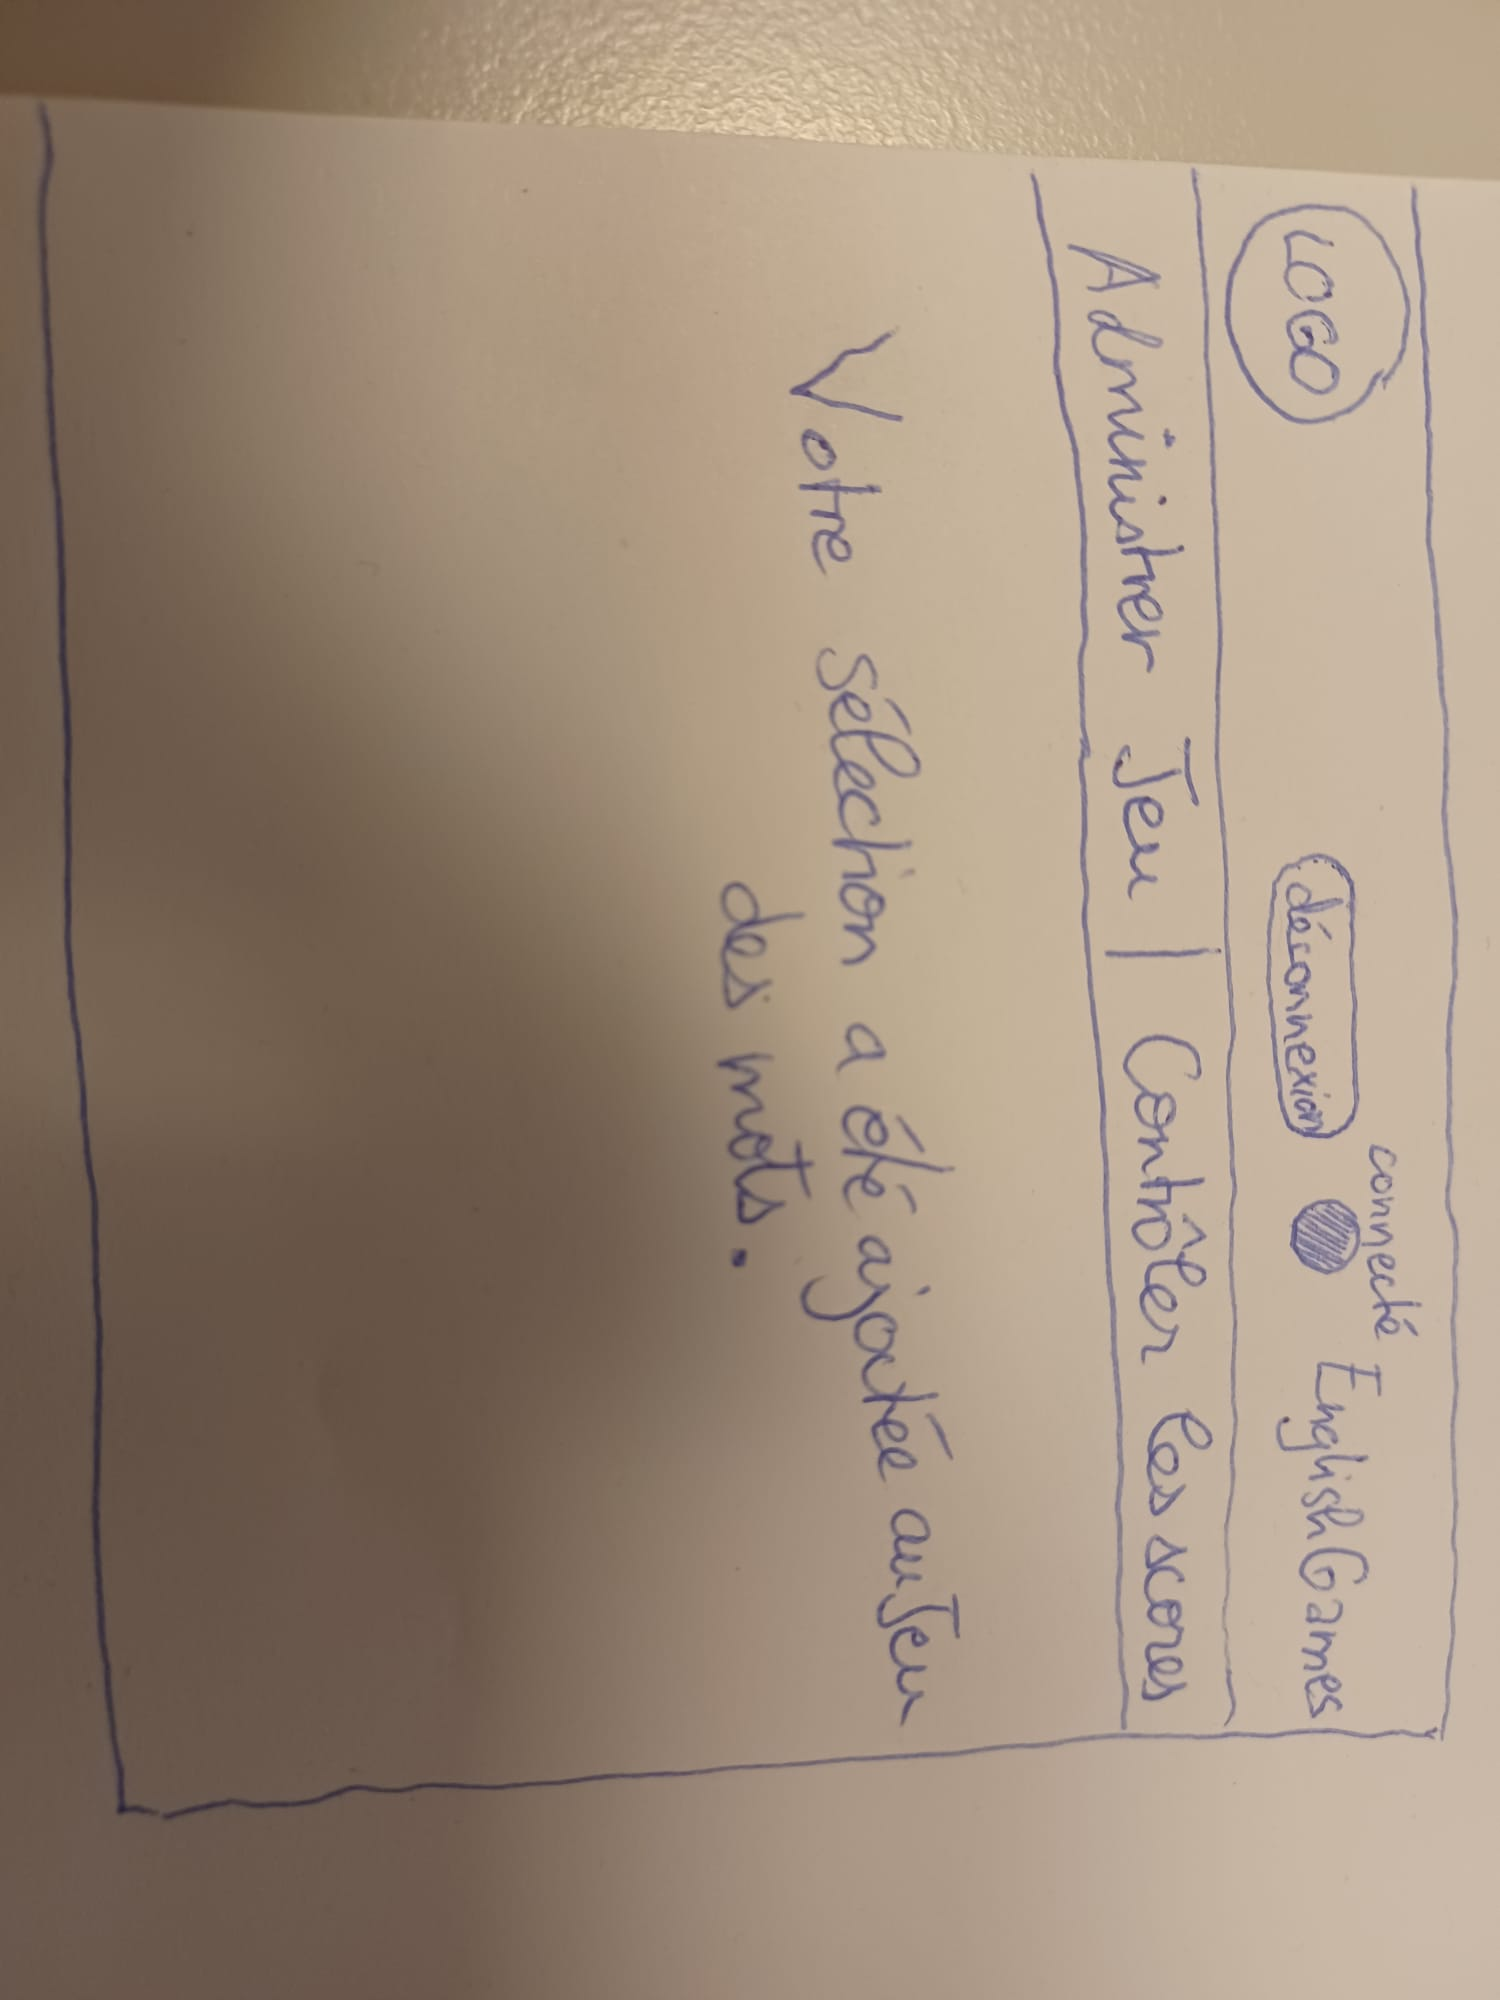 LOGO
déconnexion
connecté
EnglishGames
Administrer Jeu | Contrôler les scores
Votre sélection a été ajoutée au Jeu
des mots.